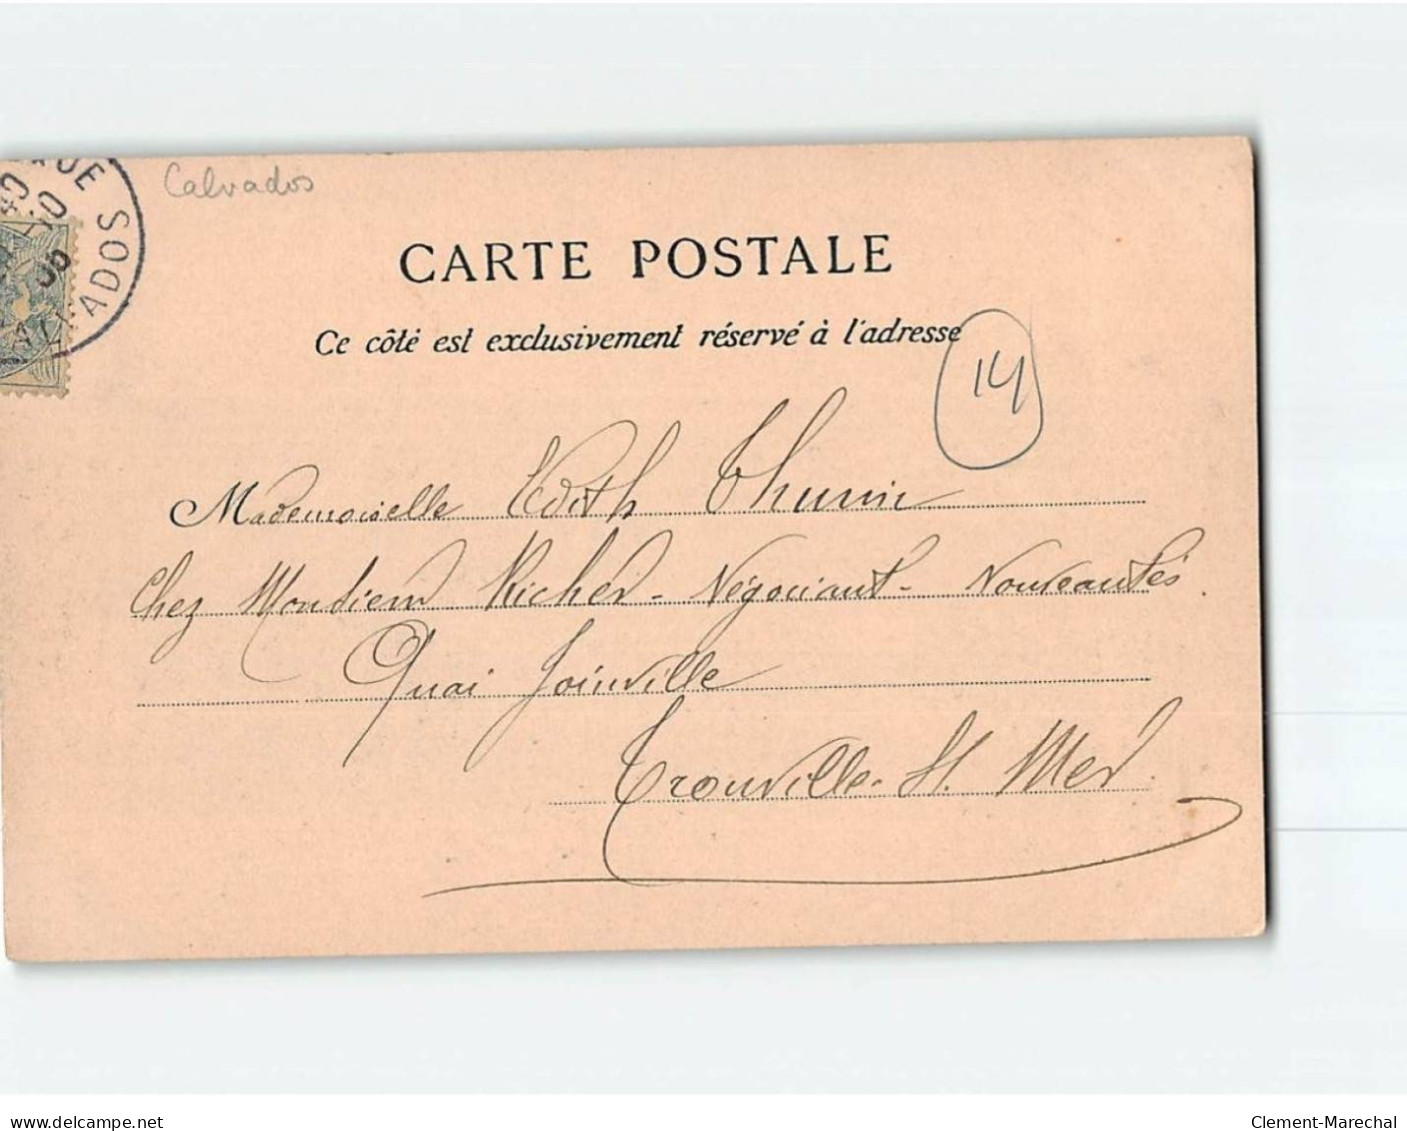 Calvados
CARTE POSTALE
Ce côté est exclusivement réservé à l'adresse
14
CALVADOS
Mademoiselle Edith Thumin
Chez Monsieur Richer - Négociant - Nouveautés.
Quai Joinville
Trouville - S/. Mer.
delcampe.net
Clement-Marechal